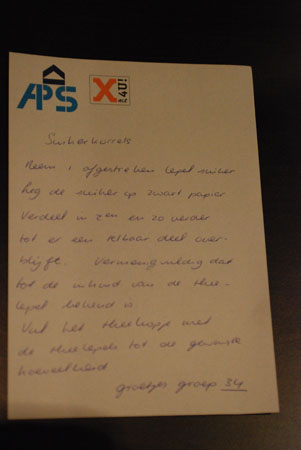 APS
X4U!
Suikerkorrels
Neem 1 afgestreken lepel suiker
leg de suiker op zwart papier
Verdeel in 2en en zo verder
tot er een telbaar deel over-
blijft. Vermenigvuldig dat
tot de inhoud van de thee-
lepel bekend is.
Vul het theekopje met
de theelepels tot de gewenste
hoeveelheid
groetjes groep 34